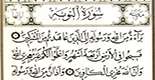 سُورَةُ التَّوْبَةِ
بَرَآءَةٌ مِّنَ ٱللَّهِ وَرَسُولِهِۦٓ إِلَى ٱلَّذِينَ عَٰهَدتُّم مِّنَ ٱلْمُشْرِكِينَ
فَسِيحُوا۟ فِى ٱلْأَرْضِ أَرْبَعَةَ أَشْهُرٍ وَٱعْلَمُوٓا۟ أَنَّكُمْ غَيْرُ مُعْجِزِى ٱللَّهِ
وَأَنَّ ٱللَّهَ مُخْزِى ٱلْكَٰفِرِينَ وَأَذَٰنٌ مِّنَ ٱللَّهِ وَرَسُولِهِۦٓ